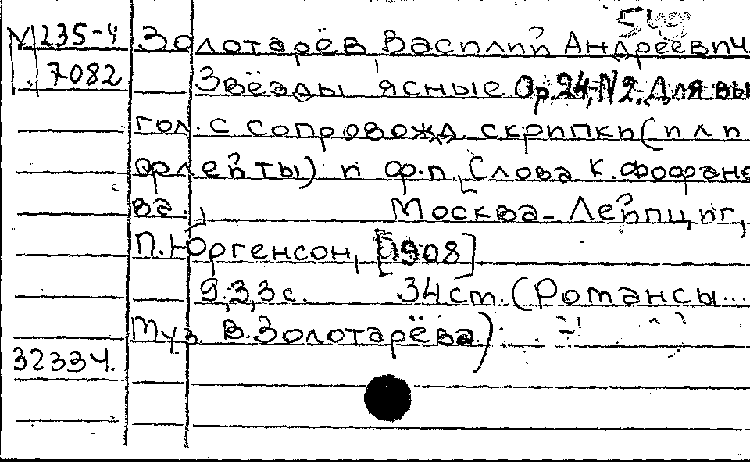 549
М 235-4 Золотарёв Василий Андреевич
7082 Звёзды ясные Ор.24, N2. Для вы
гол. с сопровожд. скрипки (или
флейты) и ф.п. Слова К. Фофано
ва. Москва-Лейпциг,
П. Юргенсон, [1908]
9,3,3 с. 34 cm. (Романсы...
муз. В. Золотарёва)
32334.